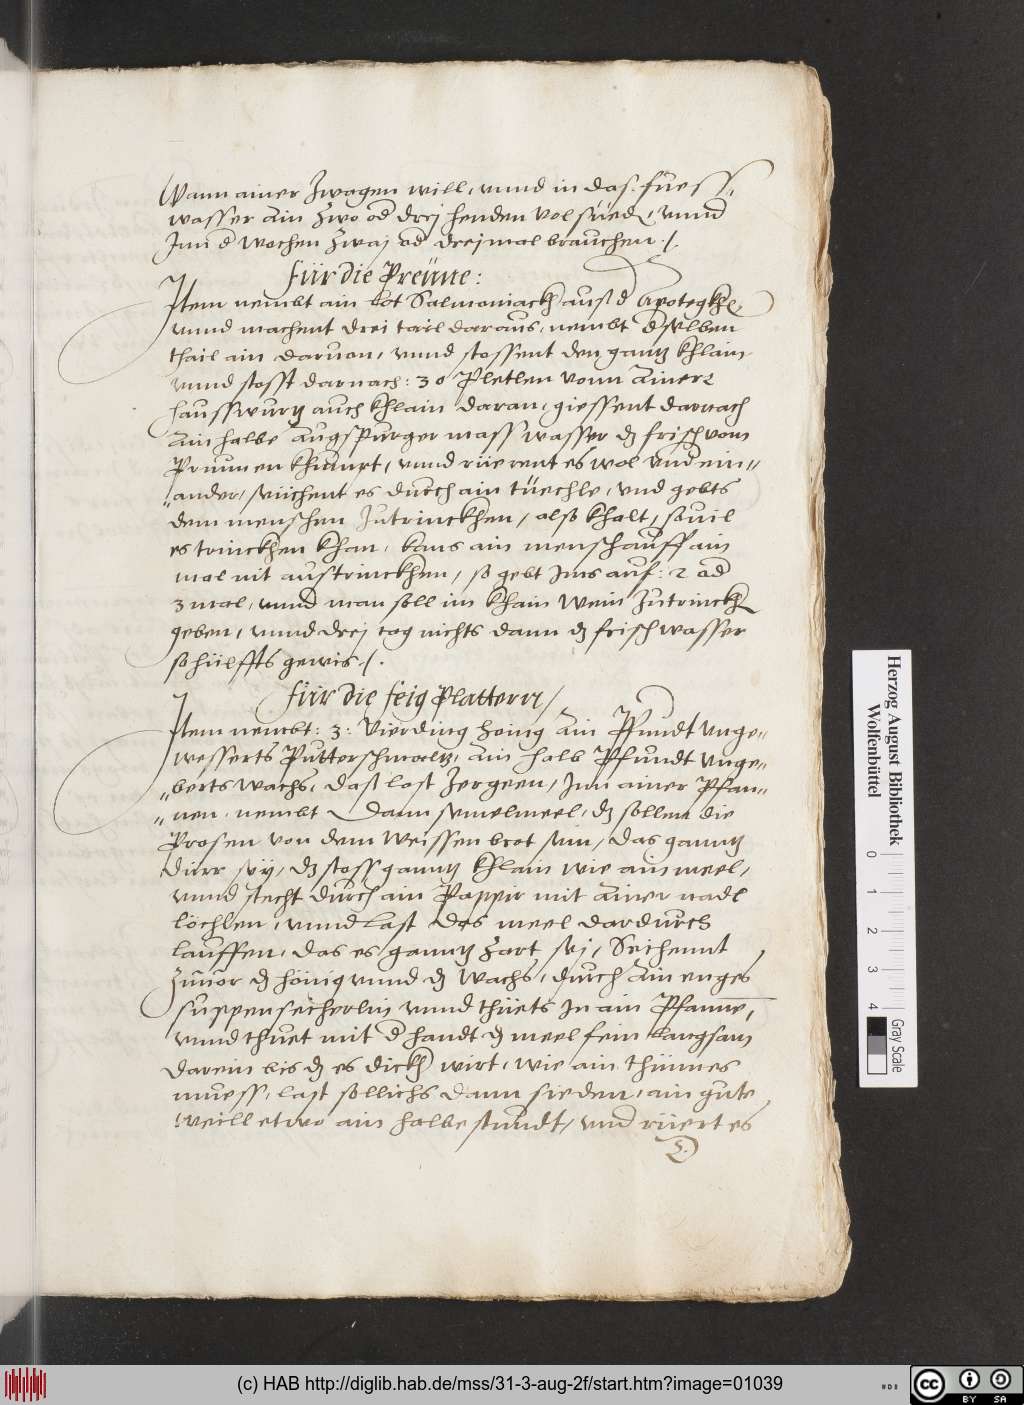 Wann ainer Zwagen will, vnnd in das fuess„
wasser ain Zwo od drej henden vol sùed, vnnd
Jnn d wochen Zwaj od dreimal brauchen ./.
für die Preüne :
Item nembt ain lot Salmoniackh auß d Apotegkhe
vnnd machent drei tail daraus, nembt dselben
thail ain daruon, vnnd stossent den gantz khlain
vnnd stosst darnach : 30 Pletlen vonn ainer
hausswurtz auch khlain daran, giessent darnach
ain halbe Augspurger mass wasser dz frisch vom
Prunnen khumpt, vnnd rüerent es wol vnd ein„
„ander, seichent es durch ain tüechle, vnd gebts
dem menschen Zutrinckhen, also khalt, souil
es trinckhen khan, kans ain mensch auff ain
mal nit austrinckhen, so gebt Jms auf : 2 od
3 mal, vnnd man soll im khain Wein Zutrinckh
geben, vnnd drej tag nichts dann dz frisch wasser
so hülffts gewis ./.
für die feig Plattern /
Item nembt : 3 : Vierding honig Ain Pfundt vnge„
wesserts Putterschmaltz, Ain halb Pfundt vnge„
„berts wachs, daß last Zergeen, Jnn ainer Pfan„
„nen, nembt dann semelmeel, dz sollen die
Prosen von dem weissen brot sein, das ganntz
dürr seÿ, dz stoss ganntz khlain wie ain meel,
vnnd stecht durch ain Pappir mit ainer nadl
löchlen, vnnd Last das meel dardurch
lauffen, das es ganntz Zart sej, Seihennt
Zuuor dz hönig vnnd dz wachs, durch ain enges
suppenseicherlin vnnd thüets in ain Pfanne,
vnnd thuet mit d handt dz meel fein langsam
darein bis dz es dickh wirt, wie ain thünnes
muess, last sollichs dann sieden, ain gute
weill etwo ain halbe stundt, vnd rüert es
(c) HAB http://diglib.hab.de/mss/31-3-aug-2f/start.htm?image=01039
Herzog August Bibliothek
Wolfenbüttel
0 1 2 3 4
Gray Scale
CC BY SA